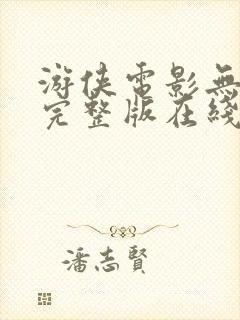 游侠電影無
完整版在綫
潘志賢